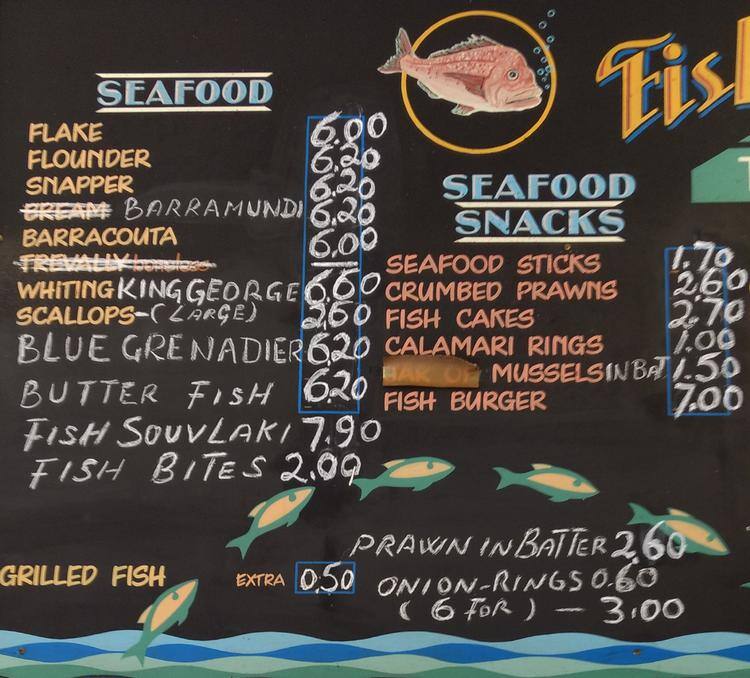 SEAFOOD
FLAKE 6.00
FLOUNDER 6.20
SNAPPER 6.20
BREAM BARRAMUNDI 6.20
BARRACOUTA 6.00
TREVALLY boneless
WHITING KING GEORGE 6.60
SCALLOPS-(LARGE) 2.60
BLUE GRENADIER 6.20
BUTTER FISH 6.20
FISH SOUVLAKI 7.90
FISH BITES 2.00
GRILLED FISH EXTRA 0.50
Fis
SEAFOOD
SNACKS
SEAFOOD STICKS 1.70
CRUMBED PRAWNS 2.60
FISH CAKES 2.70
CALAMARI RINGS 1.00
MUSSELS IN BAT. 1.50
FISH BURGER 7.00
PRAWN IN BATTER 2.60
ONION-RINGS 0.60
(6 FOR) - 3.00